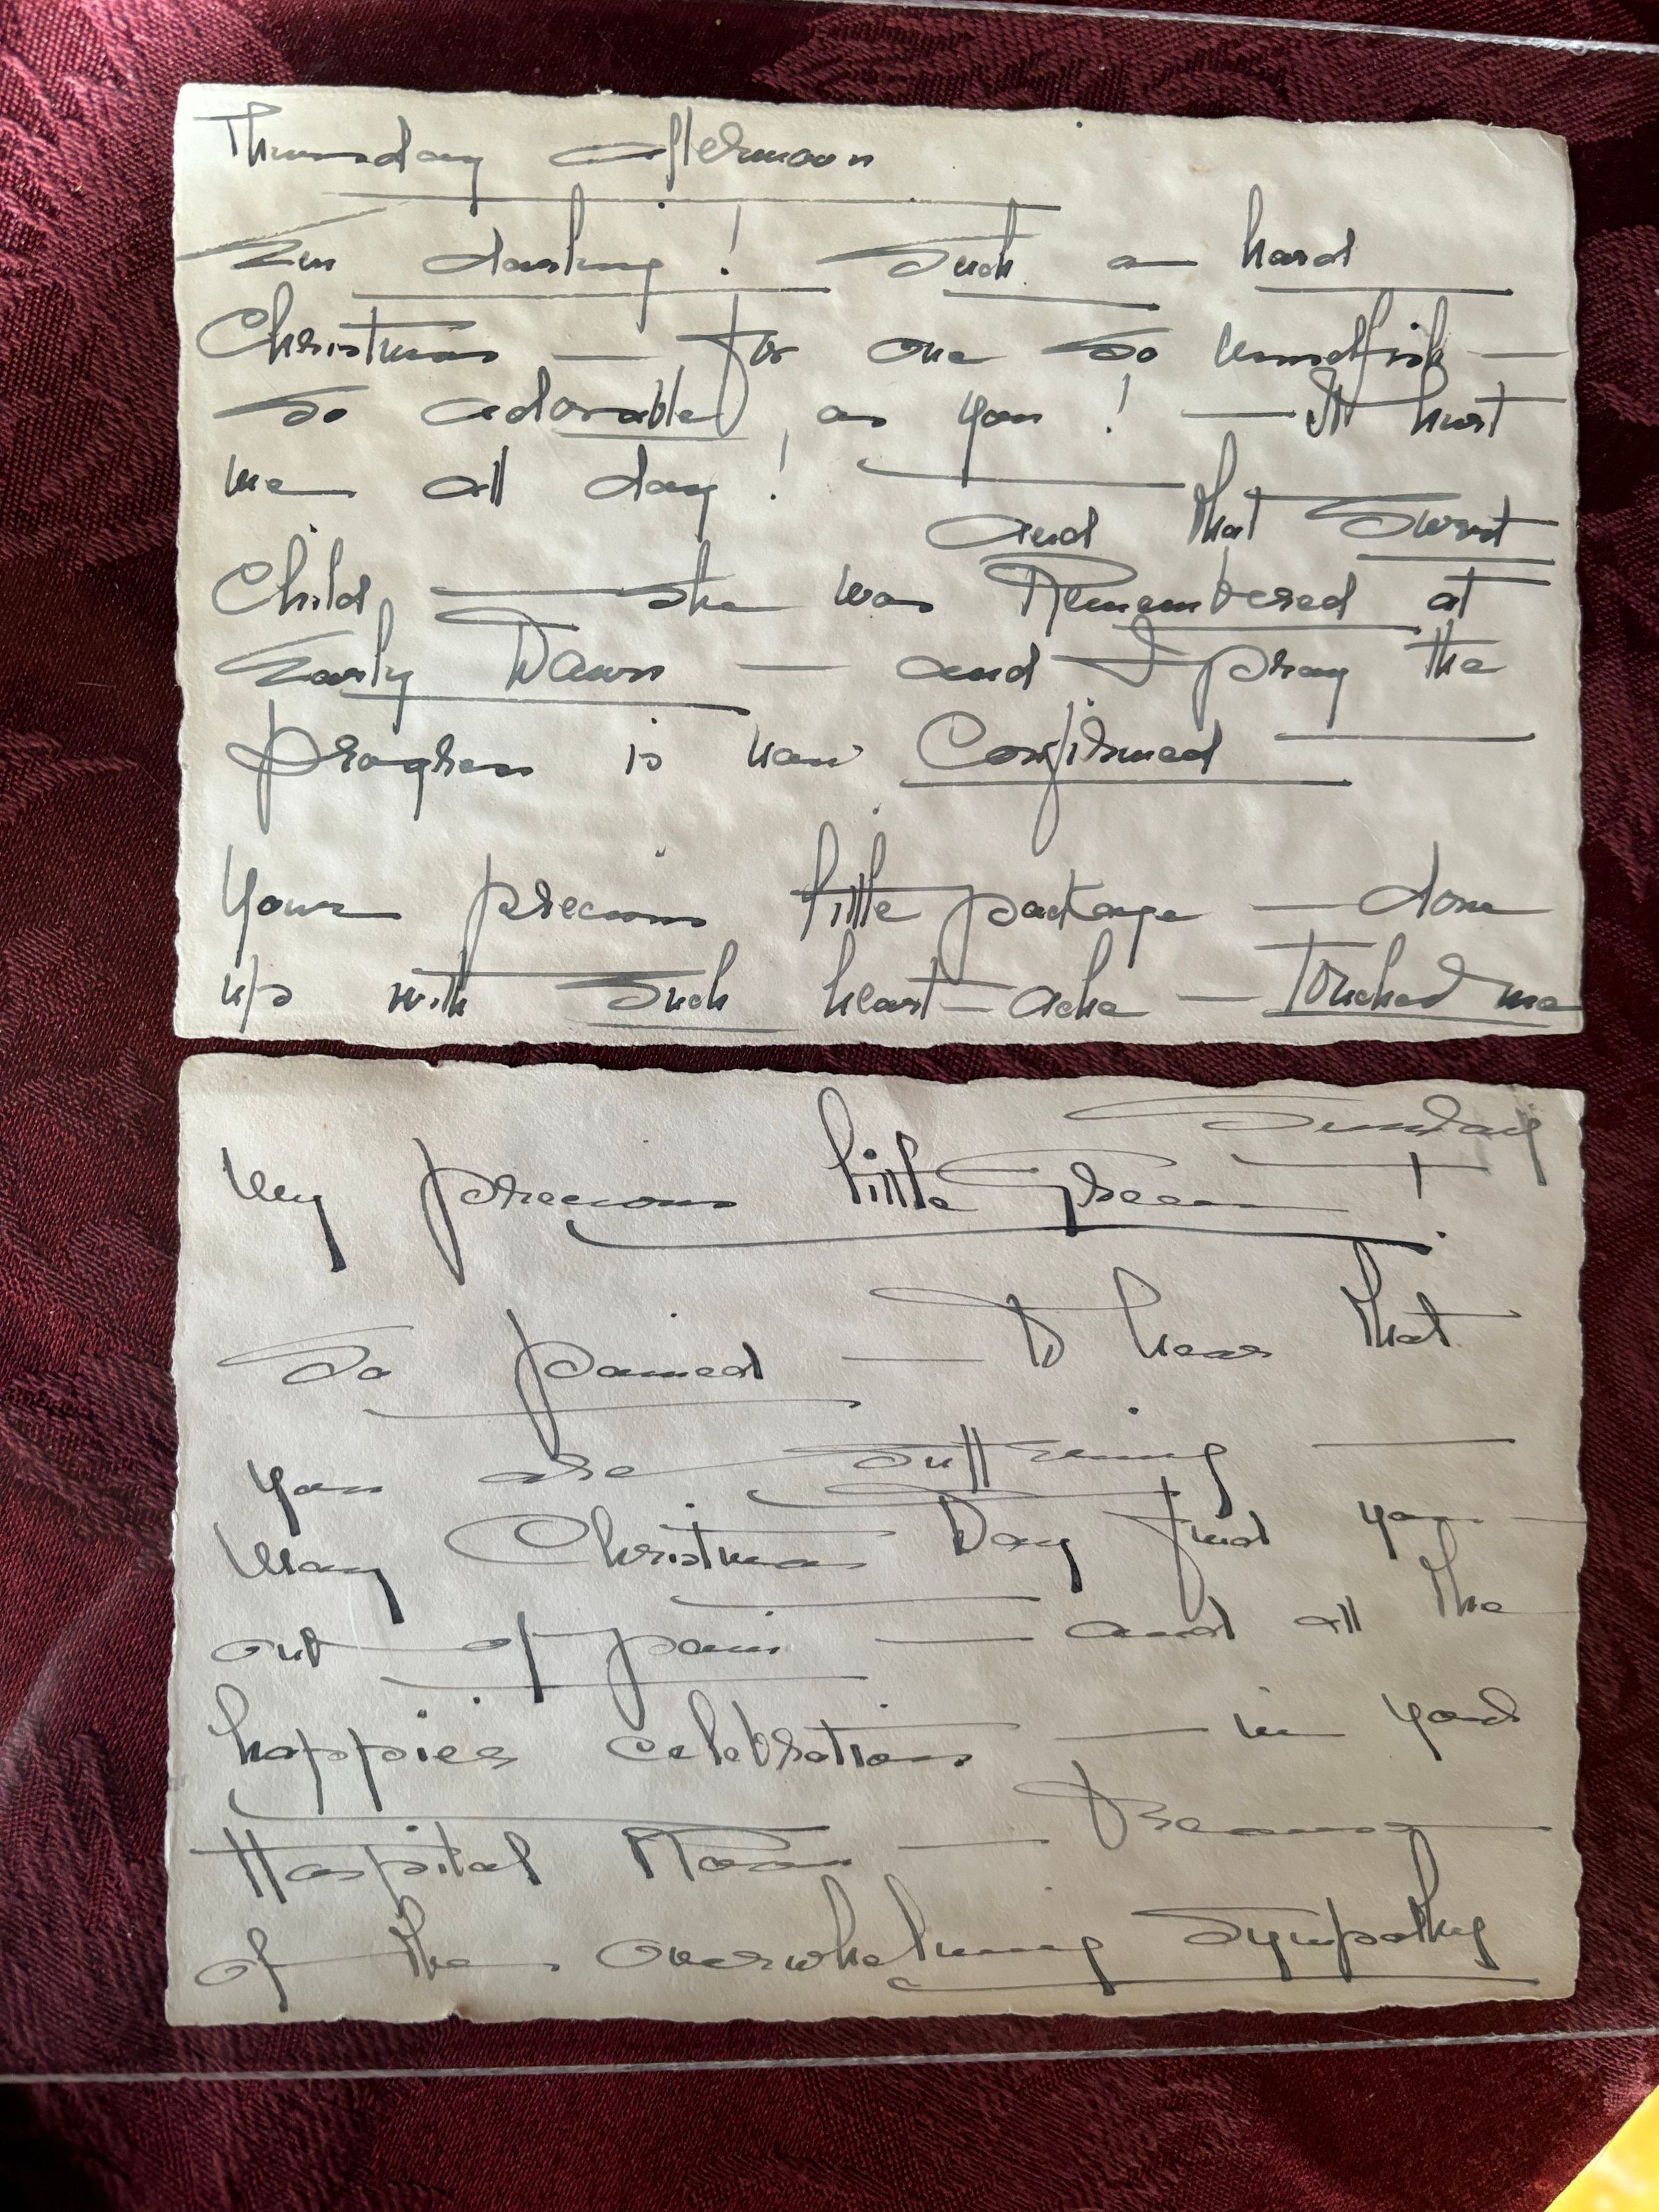 Thursday afternoon
darling! Such a hard
Christmas — for one so unselfish —
so adorable, as you! — It hurt
me all day!
and that Sweet
Child, — she was Remembered at
Early Dawn — and I pray the
progress is now Confirmed —
Your precious little package — done
up with Such heart-ache — Touched me
Sunday
My precious little Green!
So pained — to hear that
you are suffering —
May Christmas Day find you —
out of pain — and all the
happier celebration — in your
Hospital Room — Because
of the overwhelming Sympathy